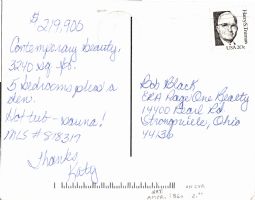 $219,900
Contemporary beauty.
3240 Sq. ft.
5 bedrooms plus a
den.
Hot tub - sauna!
MLS # 878317
Thanks,
Katy
Harry S. Truman
USA 20c
Bob Black
ERA Page One Realty
14400 Pearl Rd.
Strongsville, Ohio
44136